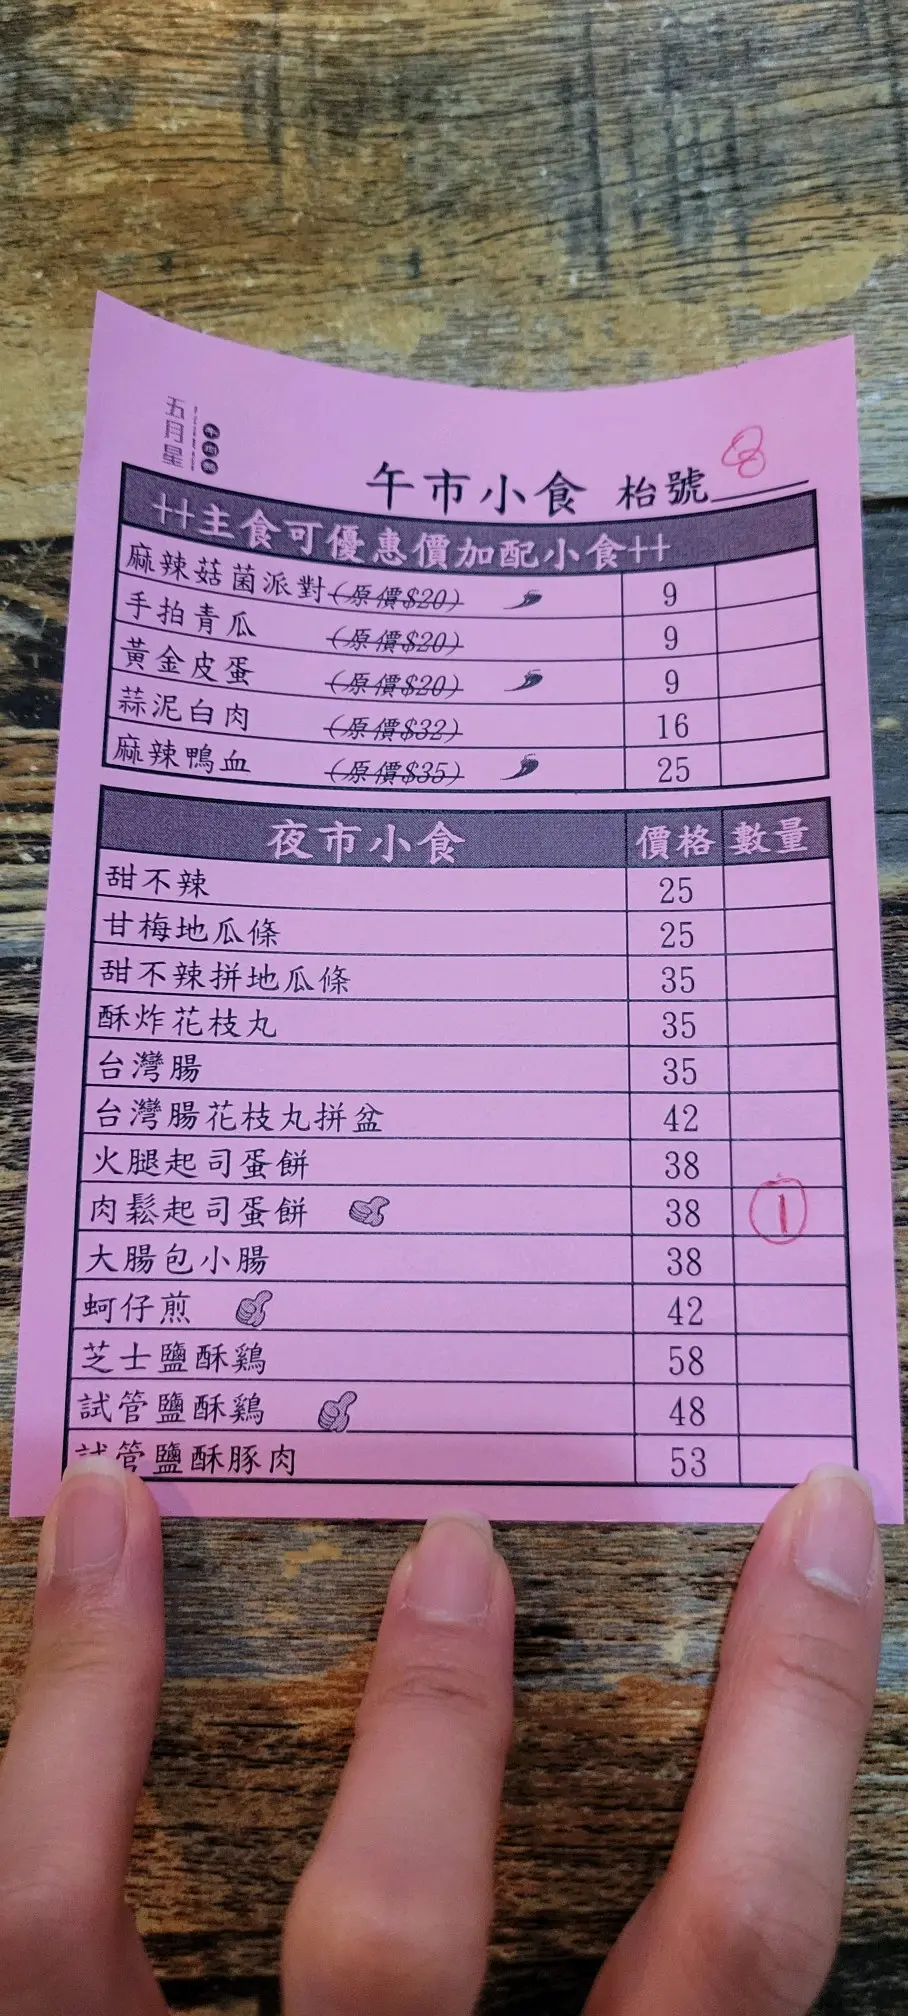 五月星
午市小食 枱號 8
++主食可優惠價加配小食++
麻辣菇菌派對 (原價$20) 9
手拍青瓜 (原價$20) 9
黃金皮蛋 (原價$20) 9
蒜泥白肉 (原價$32) 16
麻辣鴨血 (原價$35) 25
夜市小食 價格 數量
甜不辣 25
甘梅地瓜條 25
甜不辣拼地瓜條 35
酥炸花枝丸 35
台灣腸 35
台灣腸花枝丸拼盆 42
火腿起司蛋餅 38
肉鬆起司蛋餅 38 1
大腸包小腸 38
蚵仔煎 42
芝士鹽酥鷄 58
試管鹽酥鷄 48
試管鹽酥豚肉 53